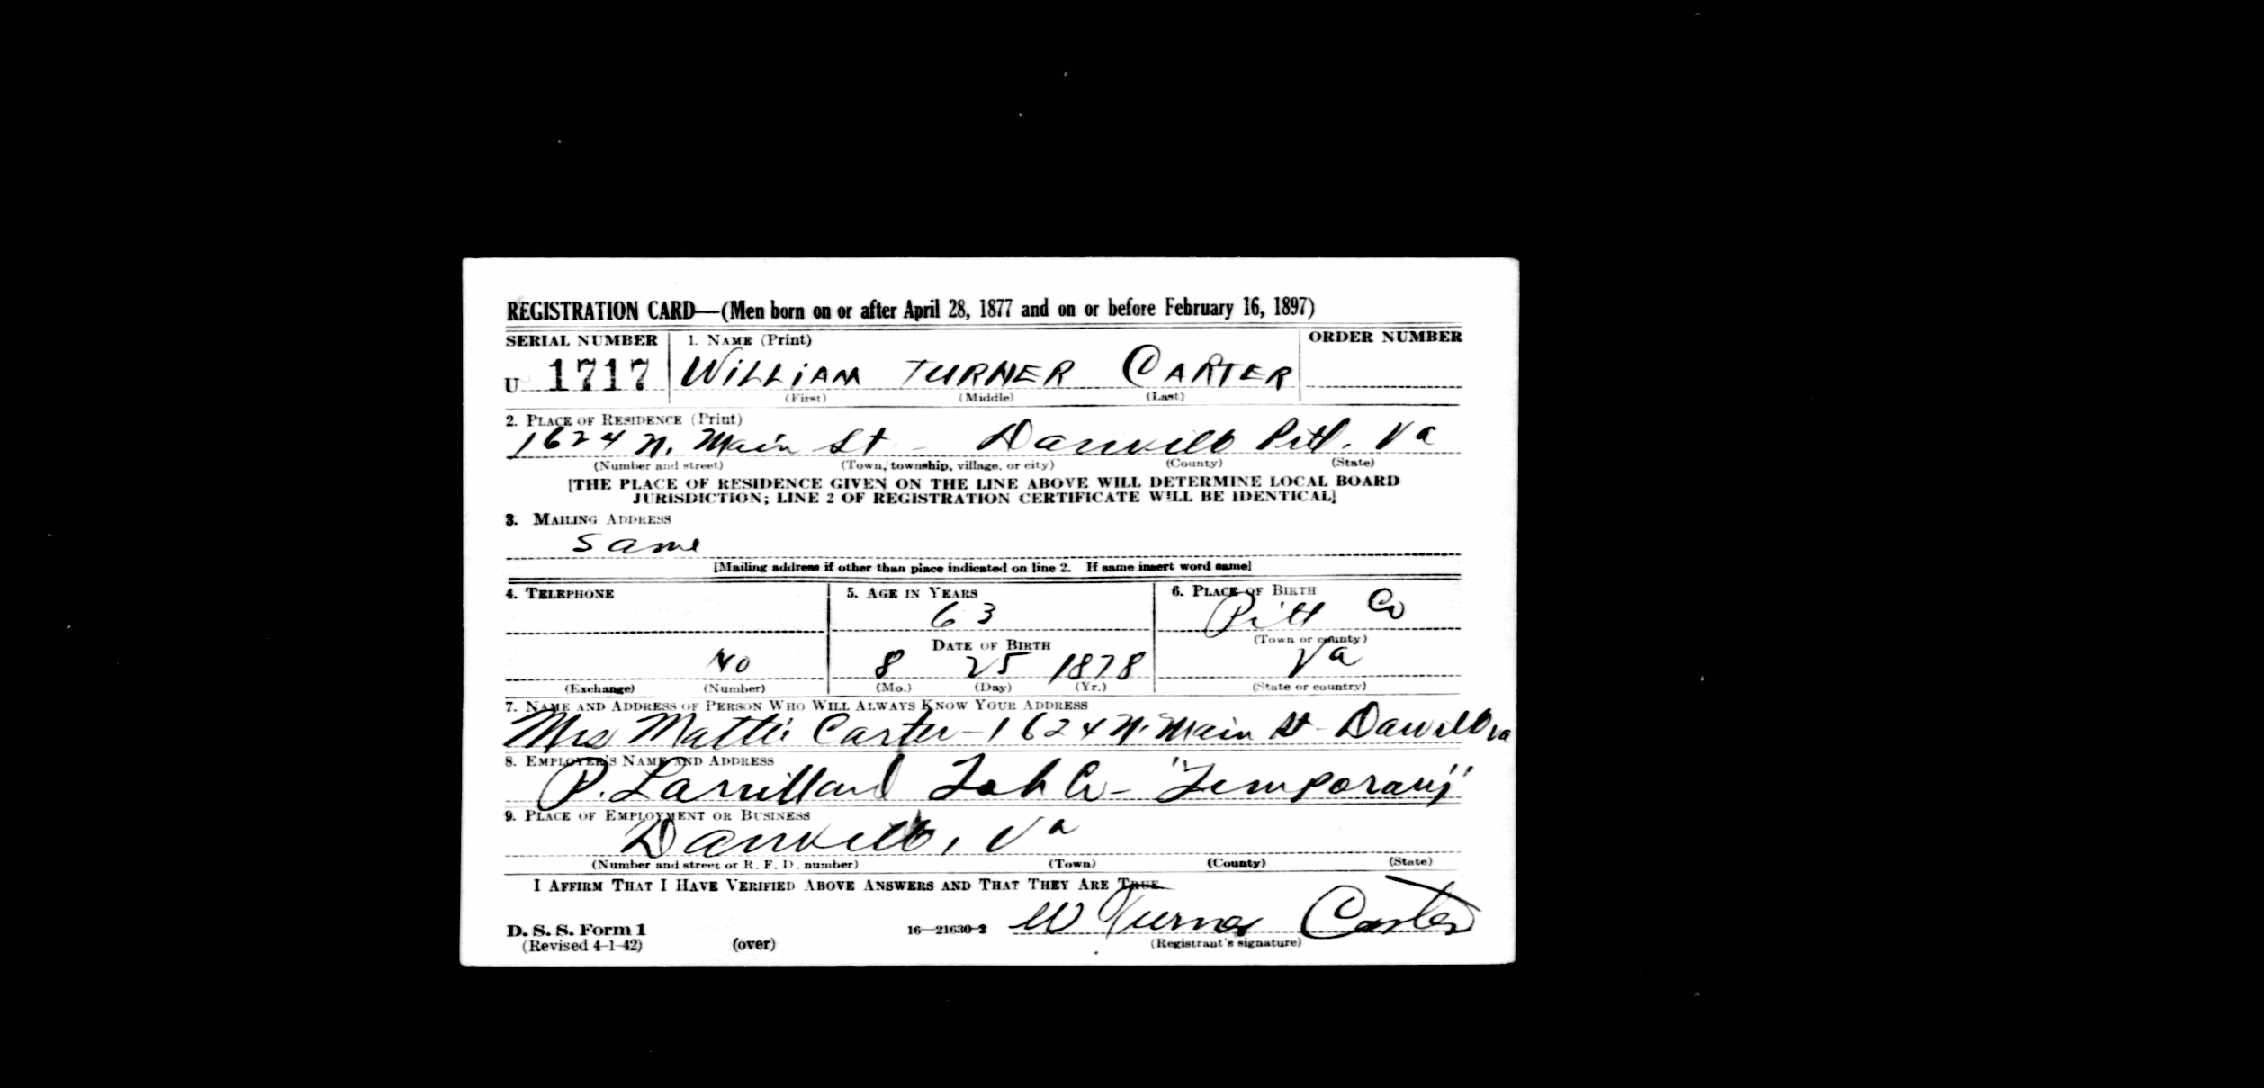 REGISTRATION CARD—(Men born on or after April 28, 1877 and on or before February 16, 1897)
SERIAL NUMBER 1. NAME (Print) ORDER NUMBER
U 1717 WiLLiAM TURNER CARTER
(First) (Middle) (Last)
2. PLACE OF RESIDENCE (Print)
1624 N. Main St - Danville Pitt. Va
(Number and street) (Town, township, village, or city) (County) (State)
[THE PLACE OF RESIDENCE GIVEN ON THE LINE ABOVE WILL DETERMINE LOCAL BOARD
JURISDICTION; LINE 2 OF REGISTRATION CERTIFICATE WILL BE IDENTICAL]
3. MAILING ADDRESS
Same
[Mailing address if other than place indicated on line 2. If same insert word same]
4. TELEPHONE 5. AGE IN YEARS 6. PLACE OF BIRTH
63 Pitt Co
DATE OF BIRTH (Town or county)
No 8 25 1878 Va
(Exchange) (Number) (Mo.) (Day) (Yr.) (State or country)
7. NAME AND ADDRESS OF PERSON WHO WILL ALWAYS KNOW YOUR ADDRESS
Mrs Mattie Carter - 1624 N. Main St - Danville Va
8. EMPLOYER'S NAME AND ADDRESS
P. Lorrillard Tob Co - "Temporary"
9. PLACE OF EMPLOYMENT OR BUSINESS
Danville, Va
(Number and street or R. F. D. number) (Town) (County) (State)
I AFFIRM THAT I HAVE VERIFIED ABOVE ANSWERS AND THAT THEY ARE TRUE.
D. S. S. Form 1 16—21630-2 W Turner Carter
(Revised 4-1-42) (over) (Registrant's signature)